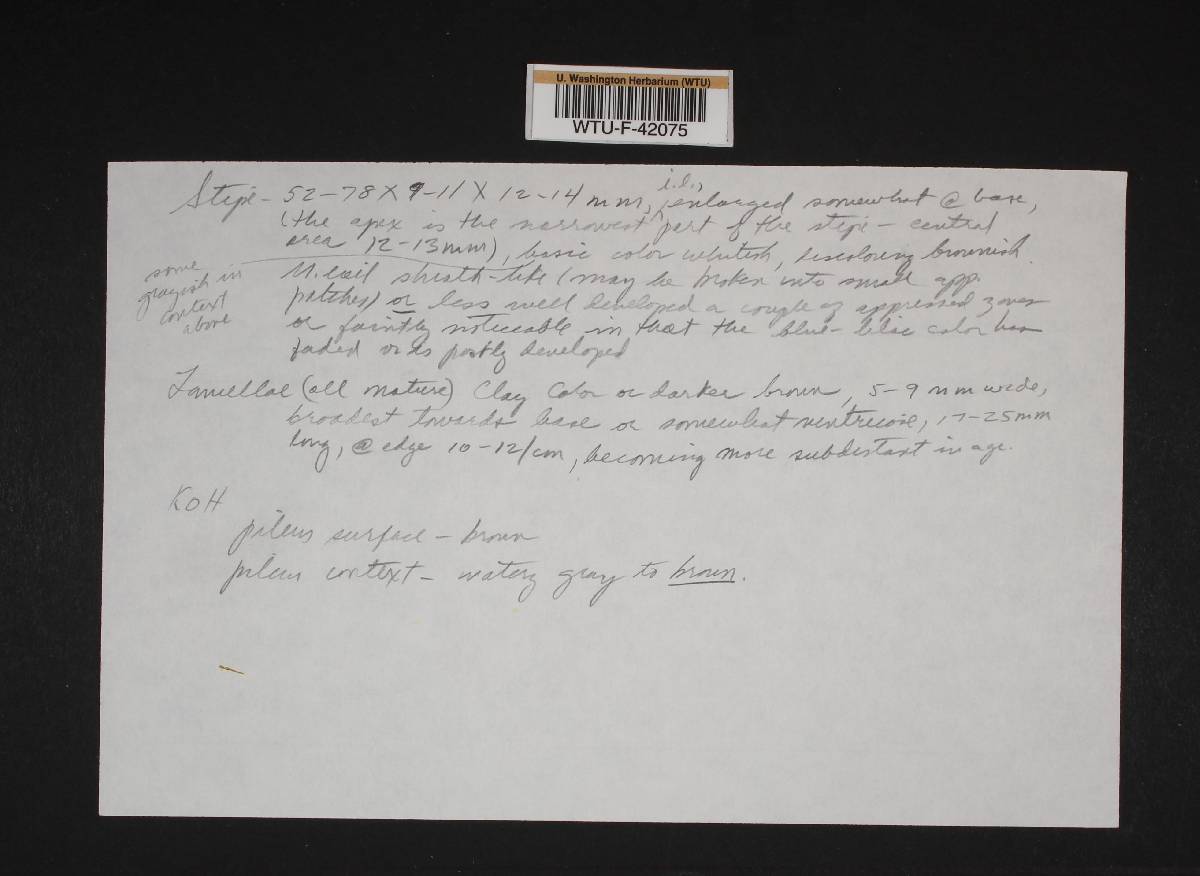 U. Washington Herbarium (WTU)
WTU-F-42075
i.e.,
Stipe - 52-78 X 9-11 X 12-14 mm, enlarged somewhat @ base,
(the apex is the narrowest part of the stipe - central
area 12-13mm), basic color whitish, discoloring brownish.
some
grayish in
context
above
U. veil sheath-like (may be broken into small app.
patches) or less well developed a couple of appressed zones
or faintly noticeable in that the blue-lilac color has
faded or is partly developed
Lamellae (all mature) Clay Color or darker brown, 5-9 mm wide,
broadest towards base or somewhat ventricose, 17-25mm
long, @ edge 10-12/cm, becoming more subdistant in age.
KOH
pileus surface - brown
pileus context - watery gray to brown.